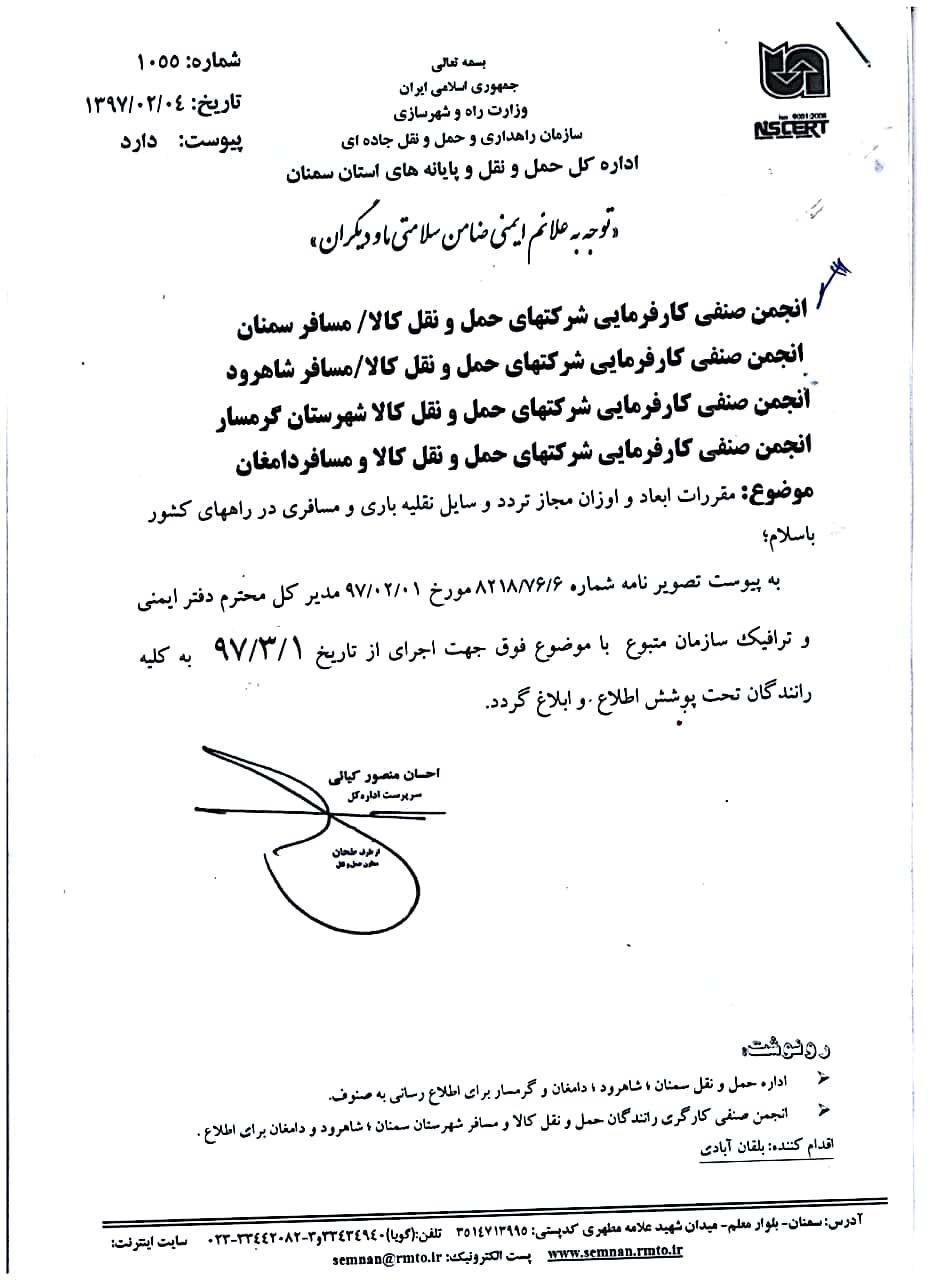 بسمه تعالی
جمهوری اسلامی ایران
وزارت راه و شهرسازی
سازمان راهداری و حمل و نقل جاده ای
اداره کل حمل و نقل و پایانه های استان سمنان
شماره: ۱۰۵۵
تاریخ: ۱۳۹۷/۰۲/۰۴
پیوست: دارد
iso 9001:2008
NSCERT
«توجه به علائم ایمنی ضامن سلامتی ما و دیگران»
انجمن صنفی کارفرمایی شرکتهای حمل و نقل کالا/ مسافر سمنان
انجمن صنفی کارفرمایی شرکتهای حمل و نقل کالا/مسافر شاهرود
انجمن صنفی کارفرمایی شرکتهای حمل و نقل کالا شهرستان گرمسار
انجمن صنفی کارفرمایی شرکتهای حمل و نقل کالا و مسافردامغان
موضوع: مقررات ابعاد و اوزان مجاز تردد و سایل نقلیه باری و مسافری در راههای کشور
باسلام؛
به پیوست تصویر نامه شماره ۸۲۱۸/۷۶/۶مورخ ۹۷/۰۲/۰۱ مدیر کل محترم دفتر ایمنی
و ترافیک سازمان متبوع با موضوع فوق جهت اجرای از تاریخ ۹۷/۳/۱ به کلیه
رانندگان تحت پوشش اطلاع و ابلاغ گردد.
احسان منصور کیائی
سرپرست اداره کل
از طرف طحان
معاون حمل و نقل
رونوشت:
اداره حمل و نقل سمنان ؛ شاهرود ؛ دامغان و گرمسار برای اطلاع رسانی به صنوف.
انجمن صنفی کارگری رانندگان حمل و نقل کالا و مسافر شهرستان سمنان ؛ شاهرود و دامغان برای اطلاع .
اقدام کننده: بلقان آبادی
آدرس: سمنان- بلوار معلم- میدان شهید علامه مطهری کدپستی: ۳۵۱۴۷۱۳۹۹۵ تلفن:(گویا)۳۳۴۳۴۹۴۰و۳-۳۳۴۴۲۰۸۲-۰۲۳ سایت اینترنت:
www.semnan.rmto.ir پست الکترونیک: semnan@rmto.ir